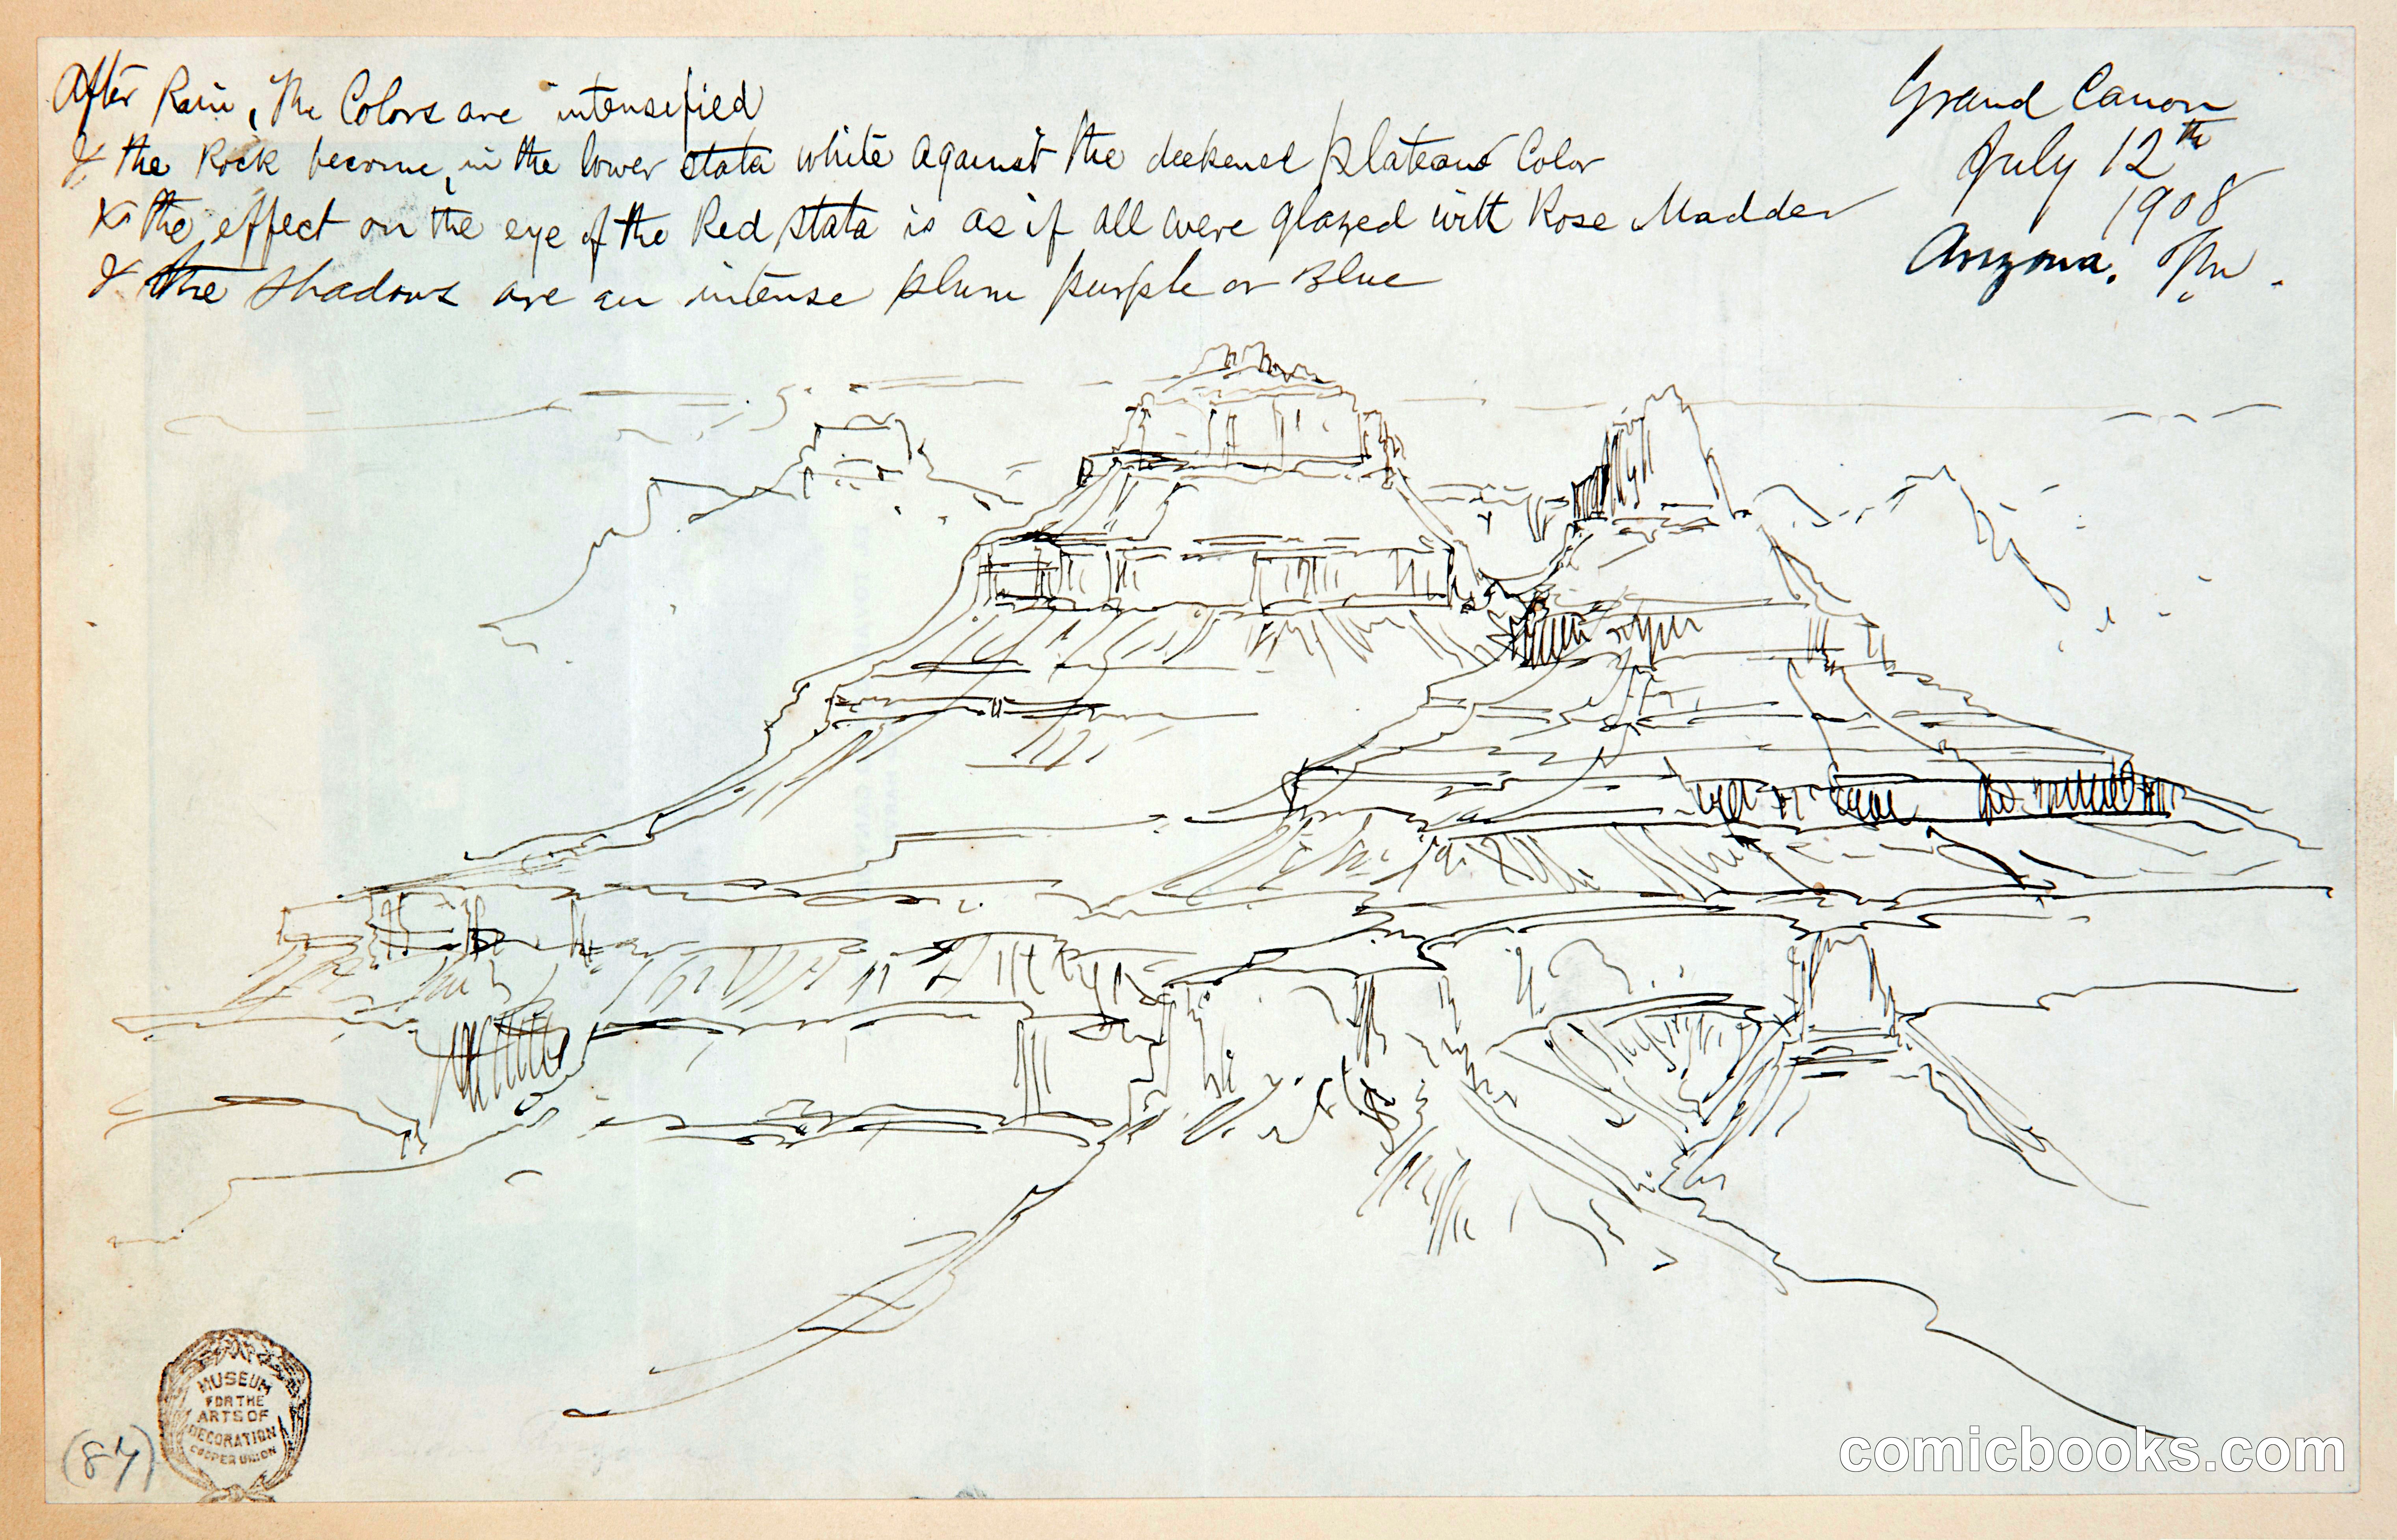 After Rain, The Colors are intensified
& the Rock become, in the lower stata white against the deekened plateau Color
& the effect on the eye of the Red stata is as if all were glazed with Rose Madder
& the shadows are an intense plum purple or Blue
Grand Canon
July 12th
1908
Arizona.
MUSEUM
FOR THE
ARTS OF
DECORATION
COOPER UNION
(87)
comicbooks.com